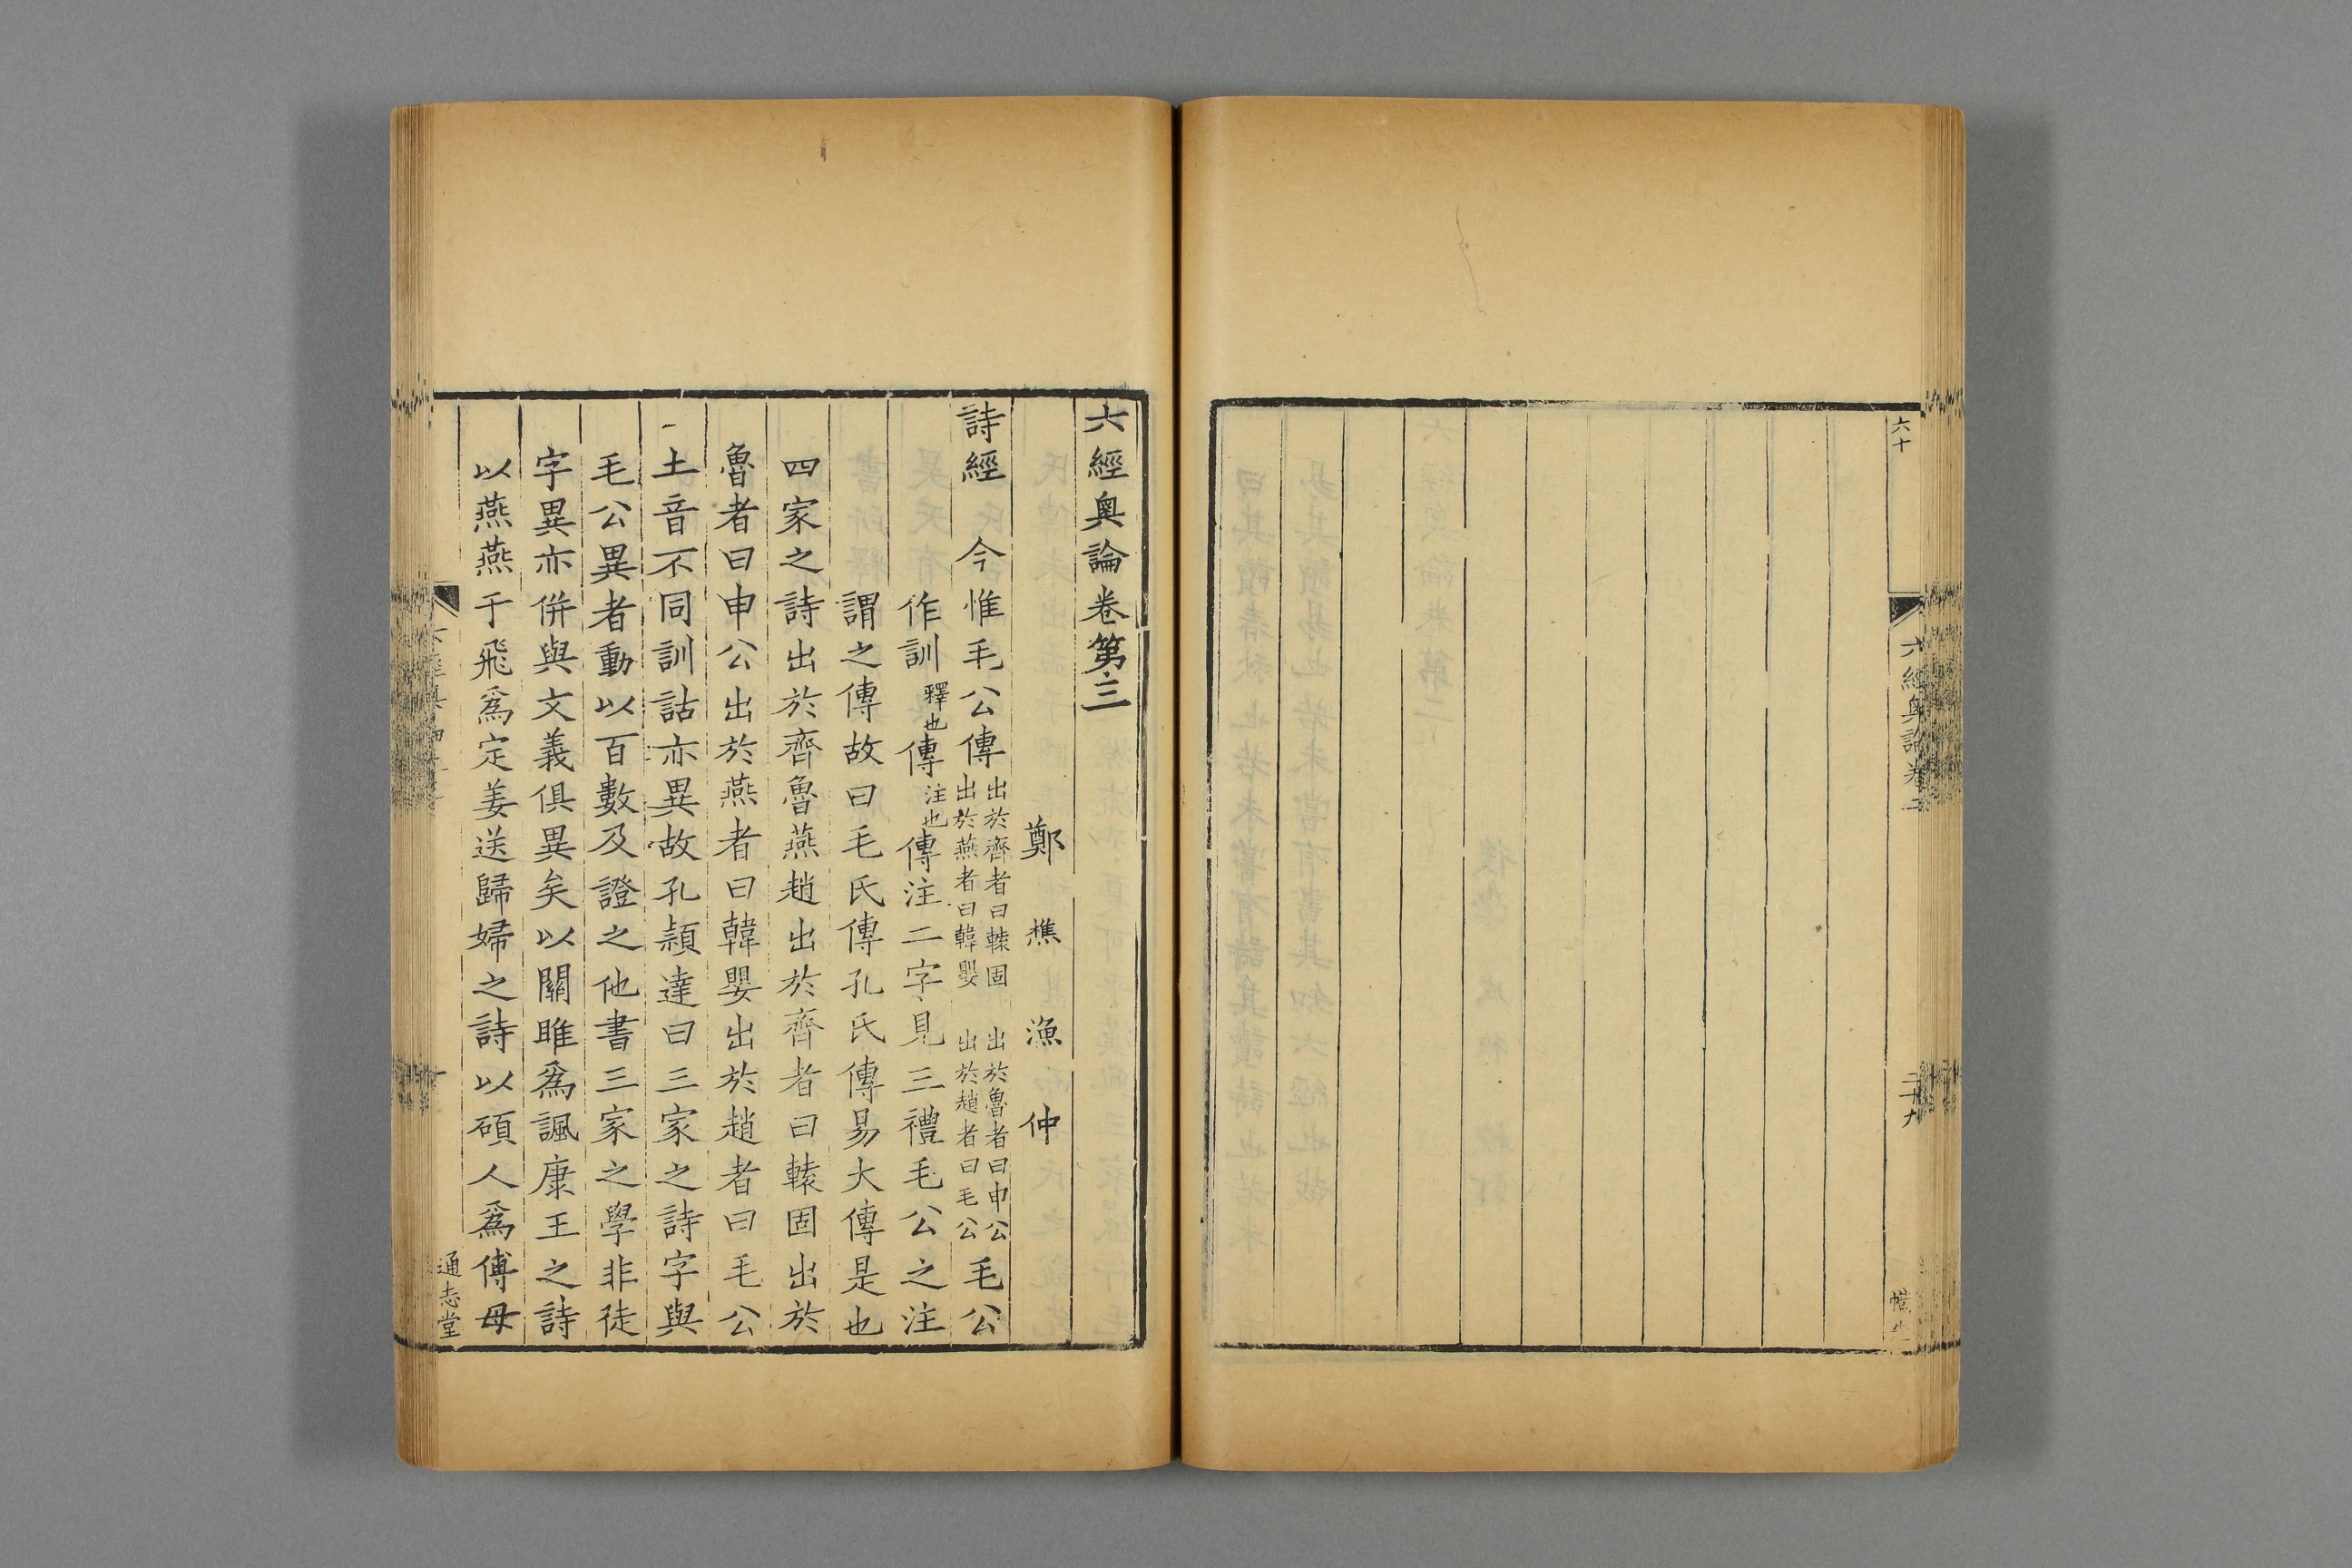 六十
六經奥論卷二
二十九
六經奥論卷第三
鄭樵漁仲
詩經 今惟毛公傳出於齊者曰轅固 出於魯者曰申公 出於燕者曰韓嬰 出於趙者曰毛公 毛公
作訓釋也傳注也傳注二字見三禮毛公之注
謂之傳故曰毛氏傳孔氏傳易大傳是也
四家之詩出於齊魯燕趙出於齊者曰轅固出於
魯者曰申公出於燕者曰韓嬰出於趙者曰毛公
土音不同訓詁亦異故孔頴達曰三家之詩字與
毛公異者動以百數及證之他書三家之學非徒
字異亦併與文義俱異矣以關雎爲諷康王之詩
以燕燕于飛爲定姜送歸婦之詩以碩人爲傅母
通志堂